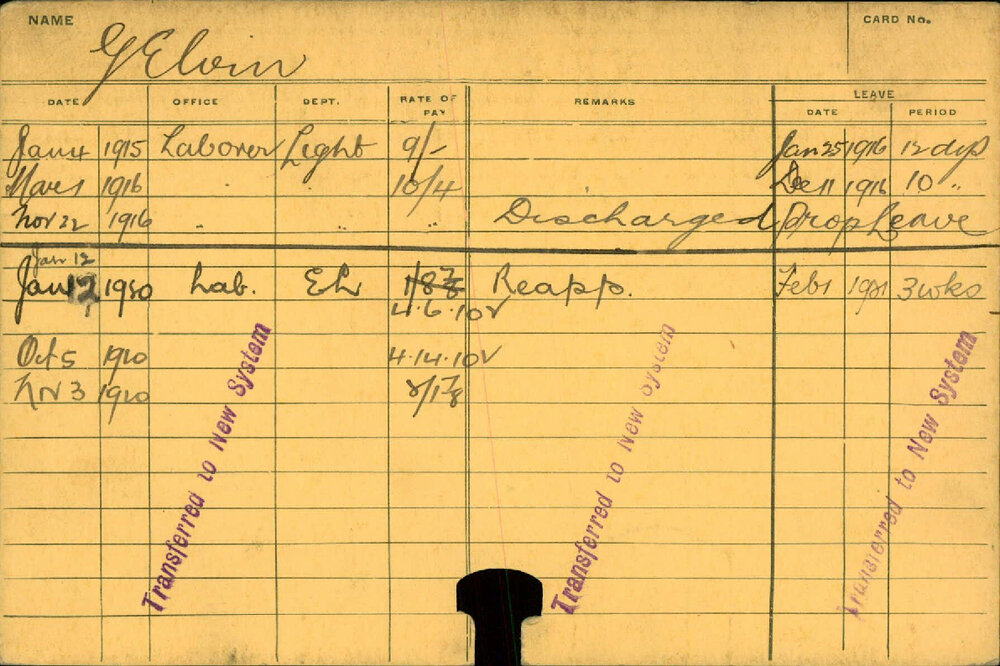 NAME
CARD No.
G Elvin
DATE OFFICE DEPT. RATE OF PAY REMARKS LEAVE
DATE PERIOD
Jan 4 1915 Laborer Light 9/- Jan 25 1916 12 dys
Mar 1 1916 " 10/4 Dec 11 1916 10 "
Nov 22 1916 " " " Discharged Prop Leave
Jan 12
Jan 12 1920 Lab. EL 1/8 7/8 Reapp. Feb 1 1921 3 wks
4.6.10
Oct 5 1920 4.14.10
Nov 3 1920 2/1 7/8
Transferred to New System
Transferred to New System
Transferred to New System